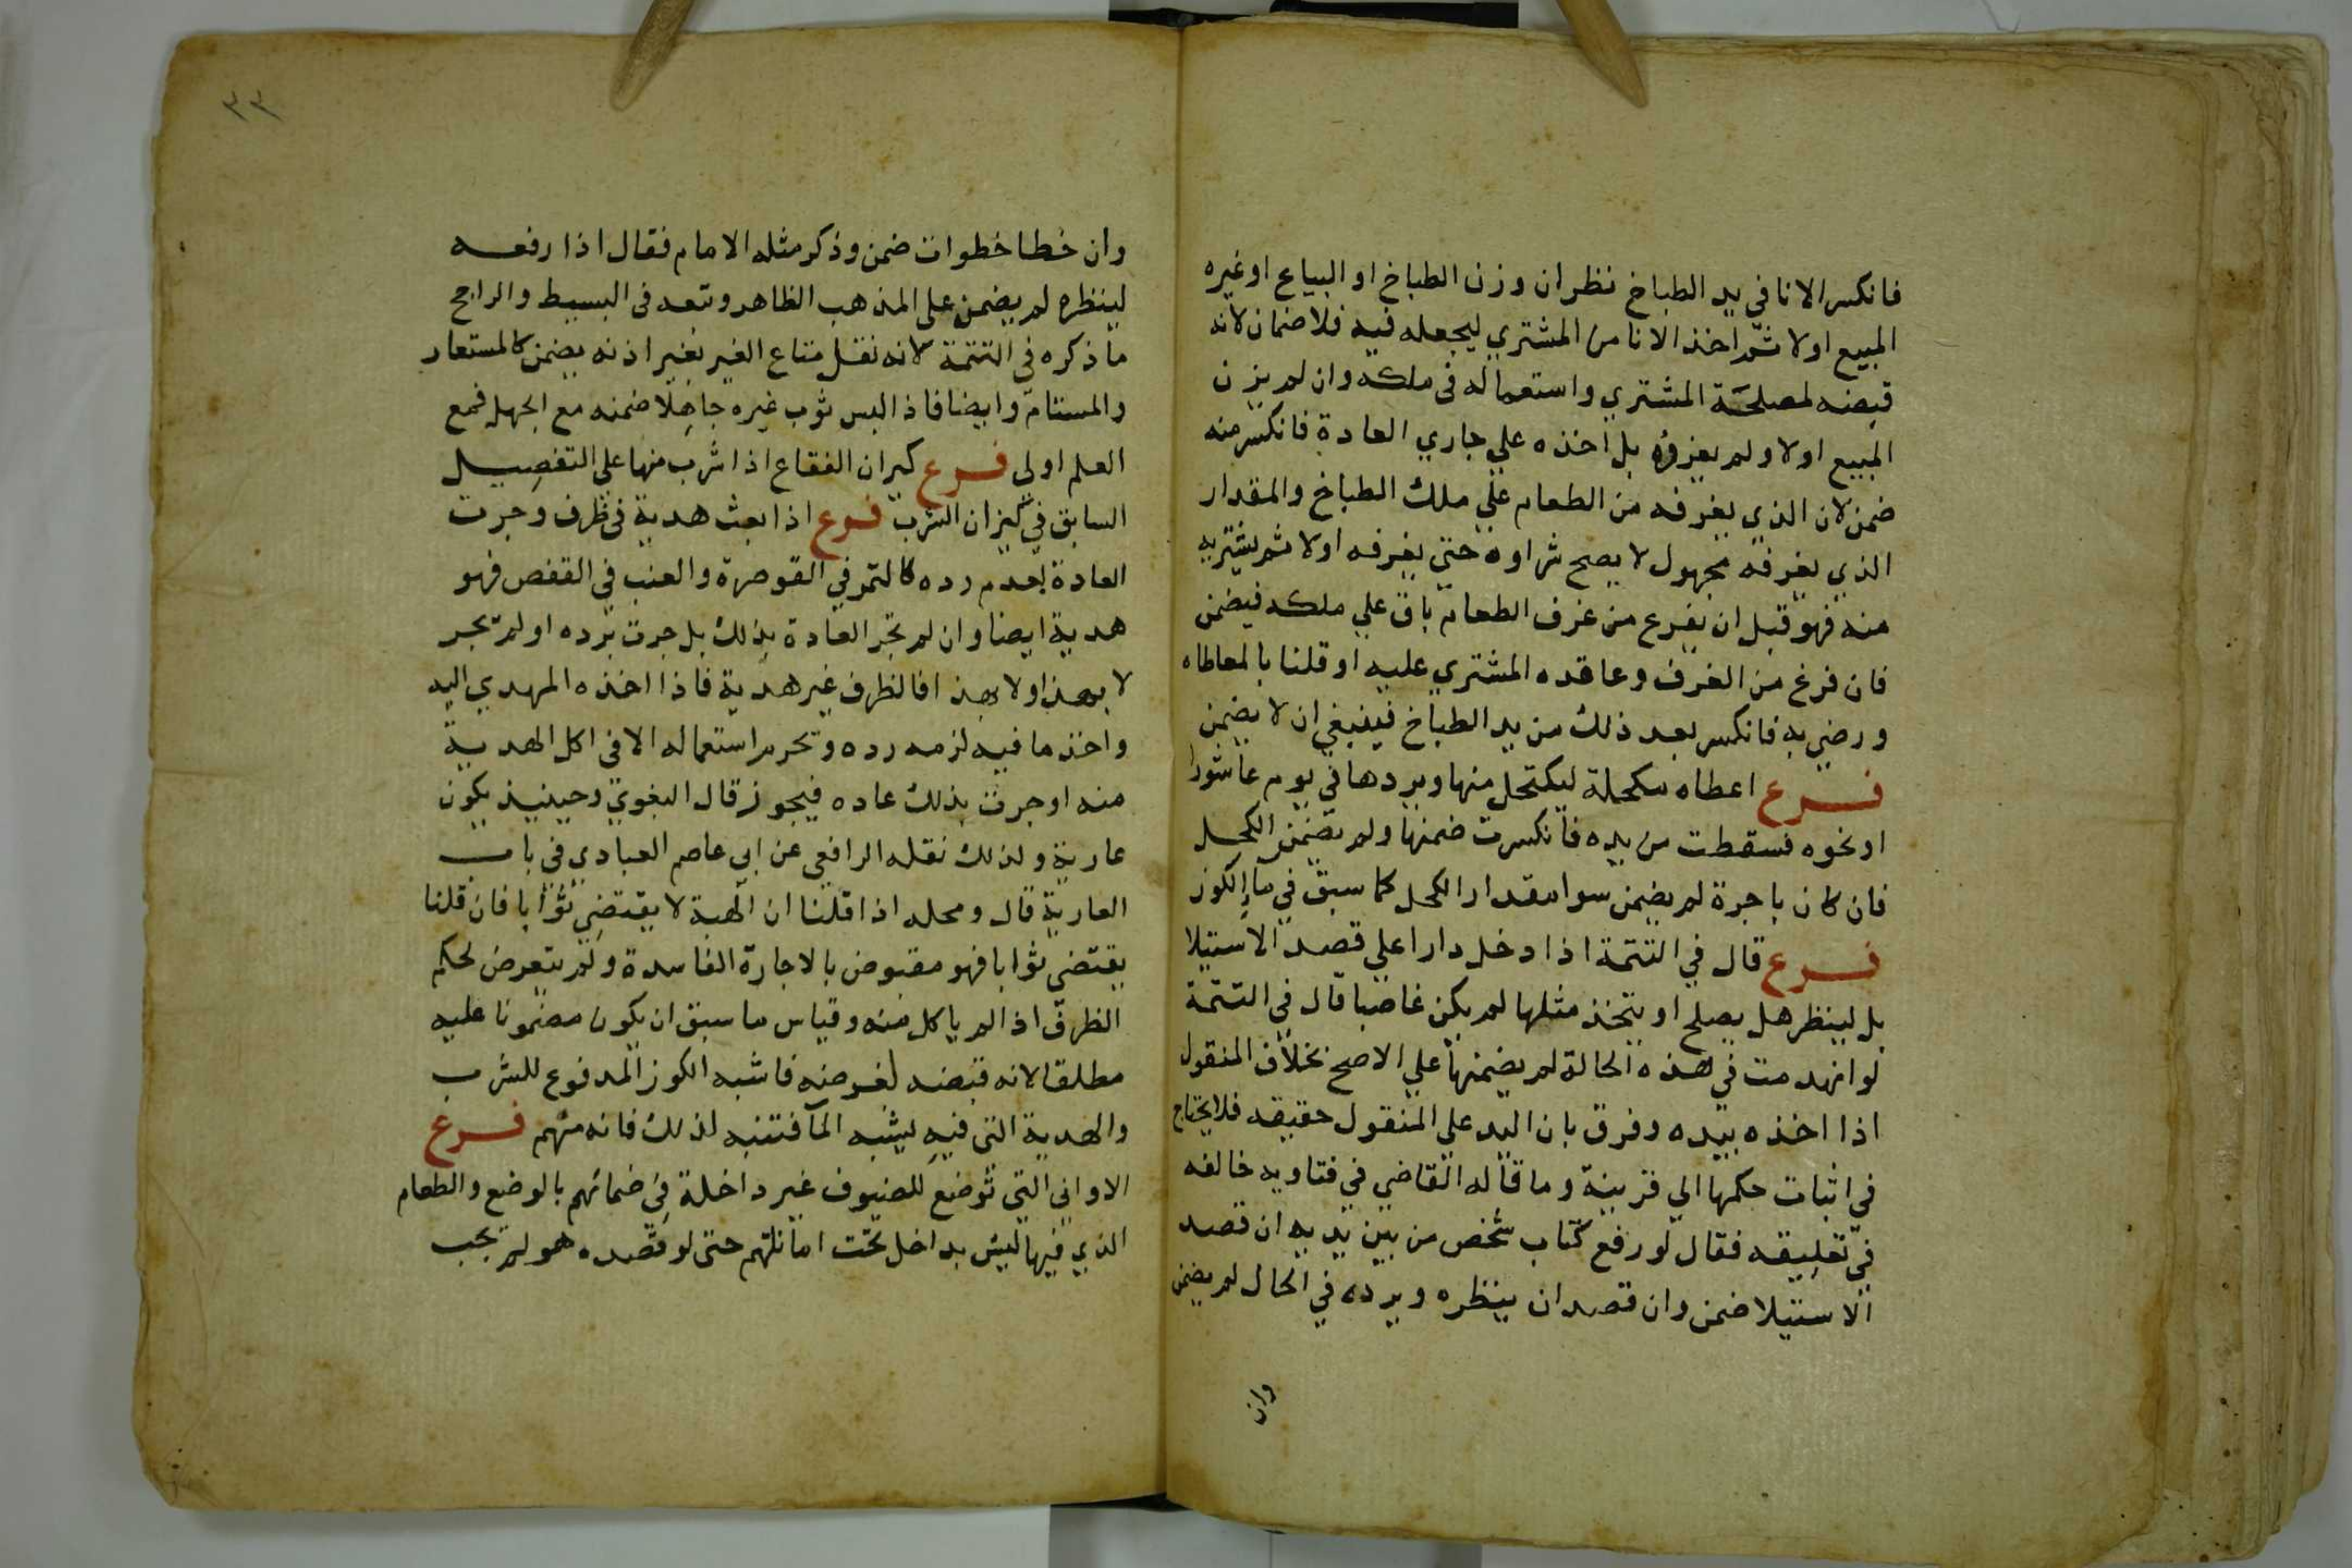 فانكسر الانا في يد الطباخ نظر ان وزن الطباخ او البياع او غيره
المبيع اولا ثم اخذ الانا من المشتري ليجعله فيه فلا ضمان لانه
قبضه لمصلحة المشتري واستعماله في ملكه وان لم يزن
المبيع اولا ولم يغرفه بل اخذه علي جاري العادة فانكسر منه
ضمن لان الذي يغرفه من الطعام علي ملك الطباخ والمقدار
الذي يغرفه مجهول لا يصح شراوه حتي يغرفه اولا ثم يشتريه
منه فهو قبل ان يفرع من غرف الطعام باق علي ملكه فيضمن
فان فرغ من الغرف وعاقده المشتري عليه او قلنا بالمعاطاه
ورضي به فانكسر بعد ذلك من يد الطباخ فينبغي ان لا يضمن
فرع اعطاه مكحلة ليكتحل منها ويردها في يوم عاشورا
او نحوه فسقطت من يده فانكسرت ضمنها ولم يضمن الكحل
فان كان باجرة لم يضمن سوا مقدار الكحل كما سبق في ماء الكوز
فرع قال في التتمة اذا دخل دارا علي قصد الاستيلا
بل لينظر هل يصلح او يتخذ مثلها لم يكن غاصبا قال في التتمة
لو انهدمت في هذه الحالة لم يضمنها علي الاصح بخلاف المنقول
اذا اخذه بيده وفرق بان اليد علي المنقول حقيقه فلا يحتاج
في اثبات حكمها الي قرينة وما قاله القاضي في فتاويه خالفه
في تعليقه فقال لو رفع كتاب شخص من بين يديه ان قصد
الاستيلا ضمن وان قصد ان ينظره ويرده في الحال لم يضمن
وان
٣٣
وان خطا خطوات ضمن وذكر مثله الامام فقال اذا رفعه
لينظره لم يضمن علي المذهب الظاهر وتعد في البسيط والراجح
ما ذكره في التتمة لانه نقل متاع الغير بغير اذنه يضمن كالمستعار
والمستام وايضا فاذا لبس ثوب غيره جاهلا ضمنه مع الجهل فمع
العلم اولي فرع كيزان الفقاع اذا شرب منها علي التفصيل
السابق في كيزان الشرب فرع اذا بعث هدية في ظرف وجرت
العادة بعدم رده كالتمر في القوصرة والعنب في القفص فهو
هدية ايضا وان لم تجر العادة بذلك بل جرت برده او لم تجر
لا بهذا ولا بهذا فالظرف غير هدية فاذا اخذه المهدي اليه
واخذ ما فيه لزمه رده وتحرم استعماله الا في اكل الهدية
منه او جرت بذلك عاده فيجوز قال البغوي وحينيذ يكون
عارية ولذلك نقله الرافعي عن ابي عاصم العبادي في باب
العارية قال ومحله اذا قلنا ان الهبة لا يقتضي ثوابا فان قلنا
يقتضي ثوابا فهو مقبوض بالاجارة الفاسدة ولم يتعرض لحكم
الظرف اذا لم ياكل منه وقياس ما سبق ان يكون مضمونا عليه
مطلقا لانه قبضه لغرضه فاشبه الكوز المدفوع للشرب
والهدية التي فيه يشبه الما فتنبه لذلك فانه مهم فرع
الاواني التي توضع للضيوف غير داخلة في ضمانهم بالوضع والطعام
الذي فيها ليس بداخل تحت امانتهم حتى لو قصده هو لم تجب